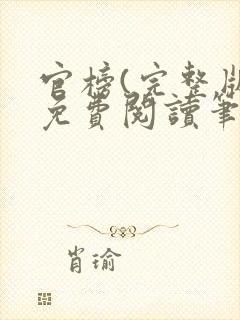 官榜(完整版
免費閱讀筆
肖瑜